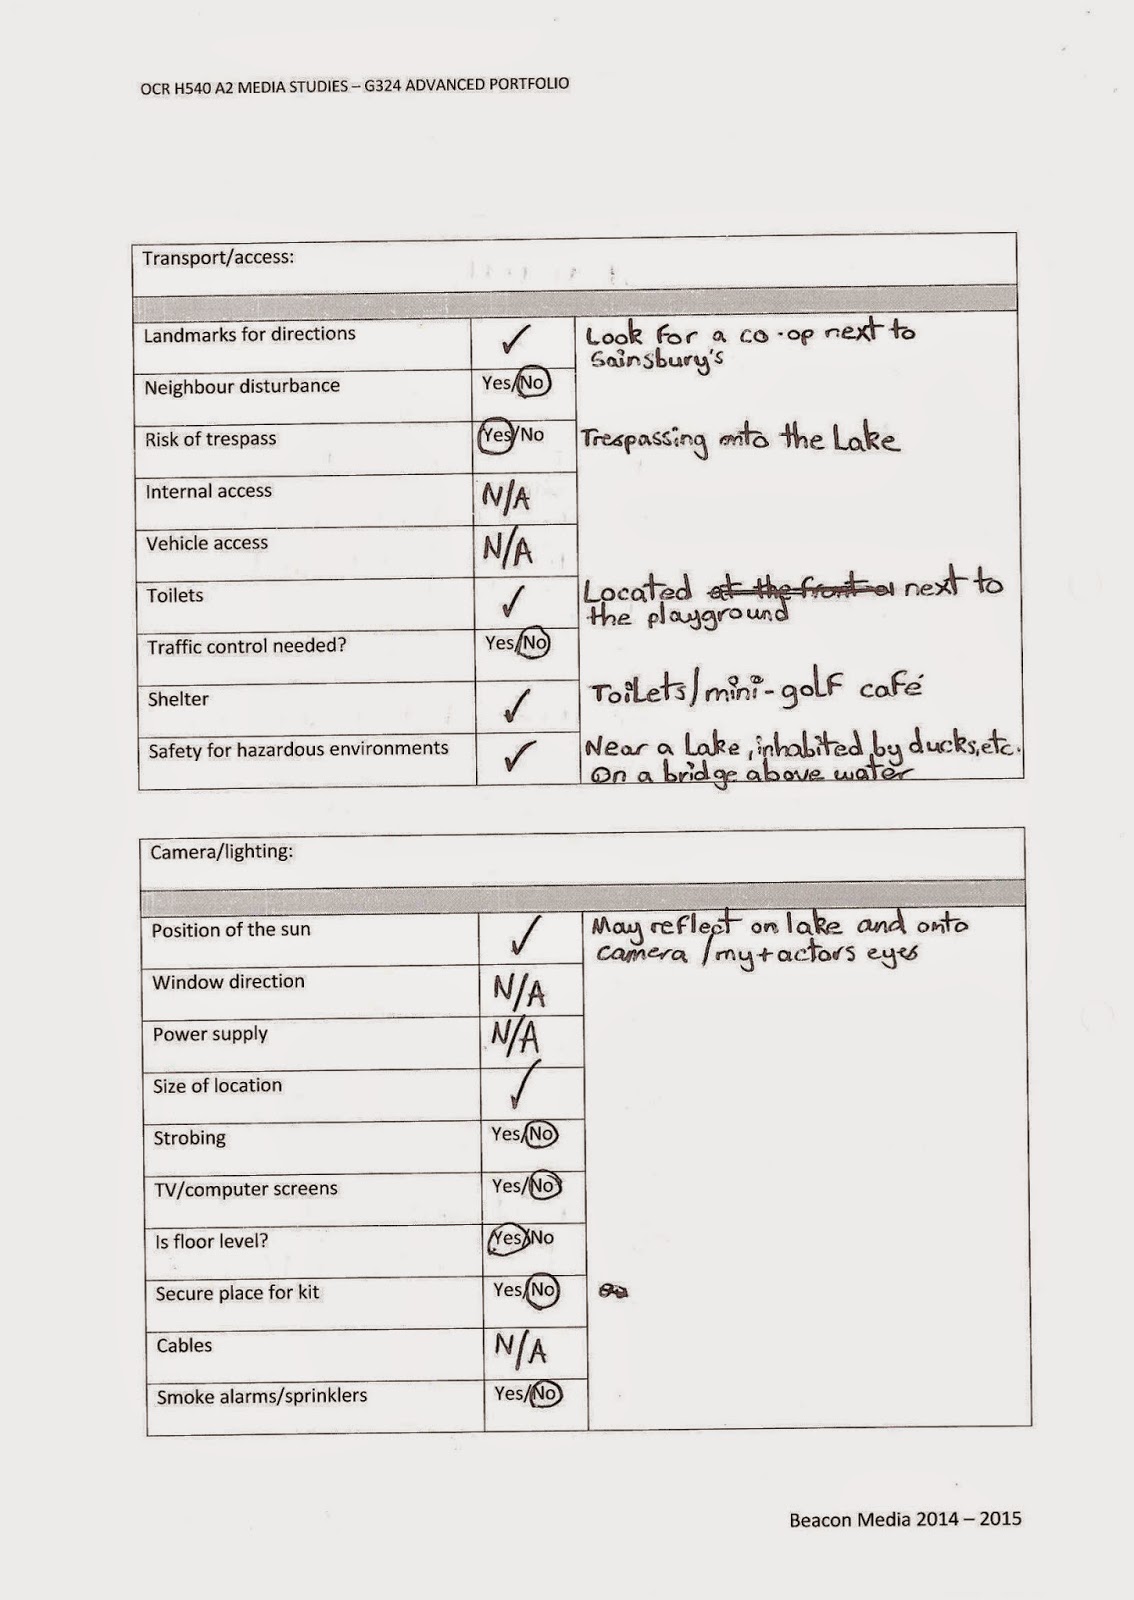 OCR H540 A2 MEDIA STUDIES – G324 ADVANCED PORTFOLIO
Transport/access:
Landmarks for directions ✓ Look For a co-op next to
Sainsbury's
Neighbour disturbance Yes/No
Risk of trespass Yes/No Trespassing onto the Lake
Internal access N/A
Vehicle access N/A
Toilets ✓ Located at the front or next to
the playground
Traffic control needed? Yes/No
Shelter ✓ Toilets/mini-golf café
Safety for hazardous environments ✓ Near a Lake, inhabited by ducks, etc.
On a bridge above water
Camera/lighting:
Position of the sun ✓ May reflect on lake and onto
camera /my + actors eyes
Window direction N/A
Power supply N/A
Size of location ✓
Strobing Yes/No
TV/computer screens Yes/No
Is floor level? Yes/No
Secure place for kit Yes/No
Cables N/A
Smoke alarms/sprinklers Yes/No
Beacon Media 2014 – 2015